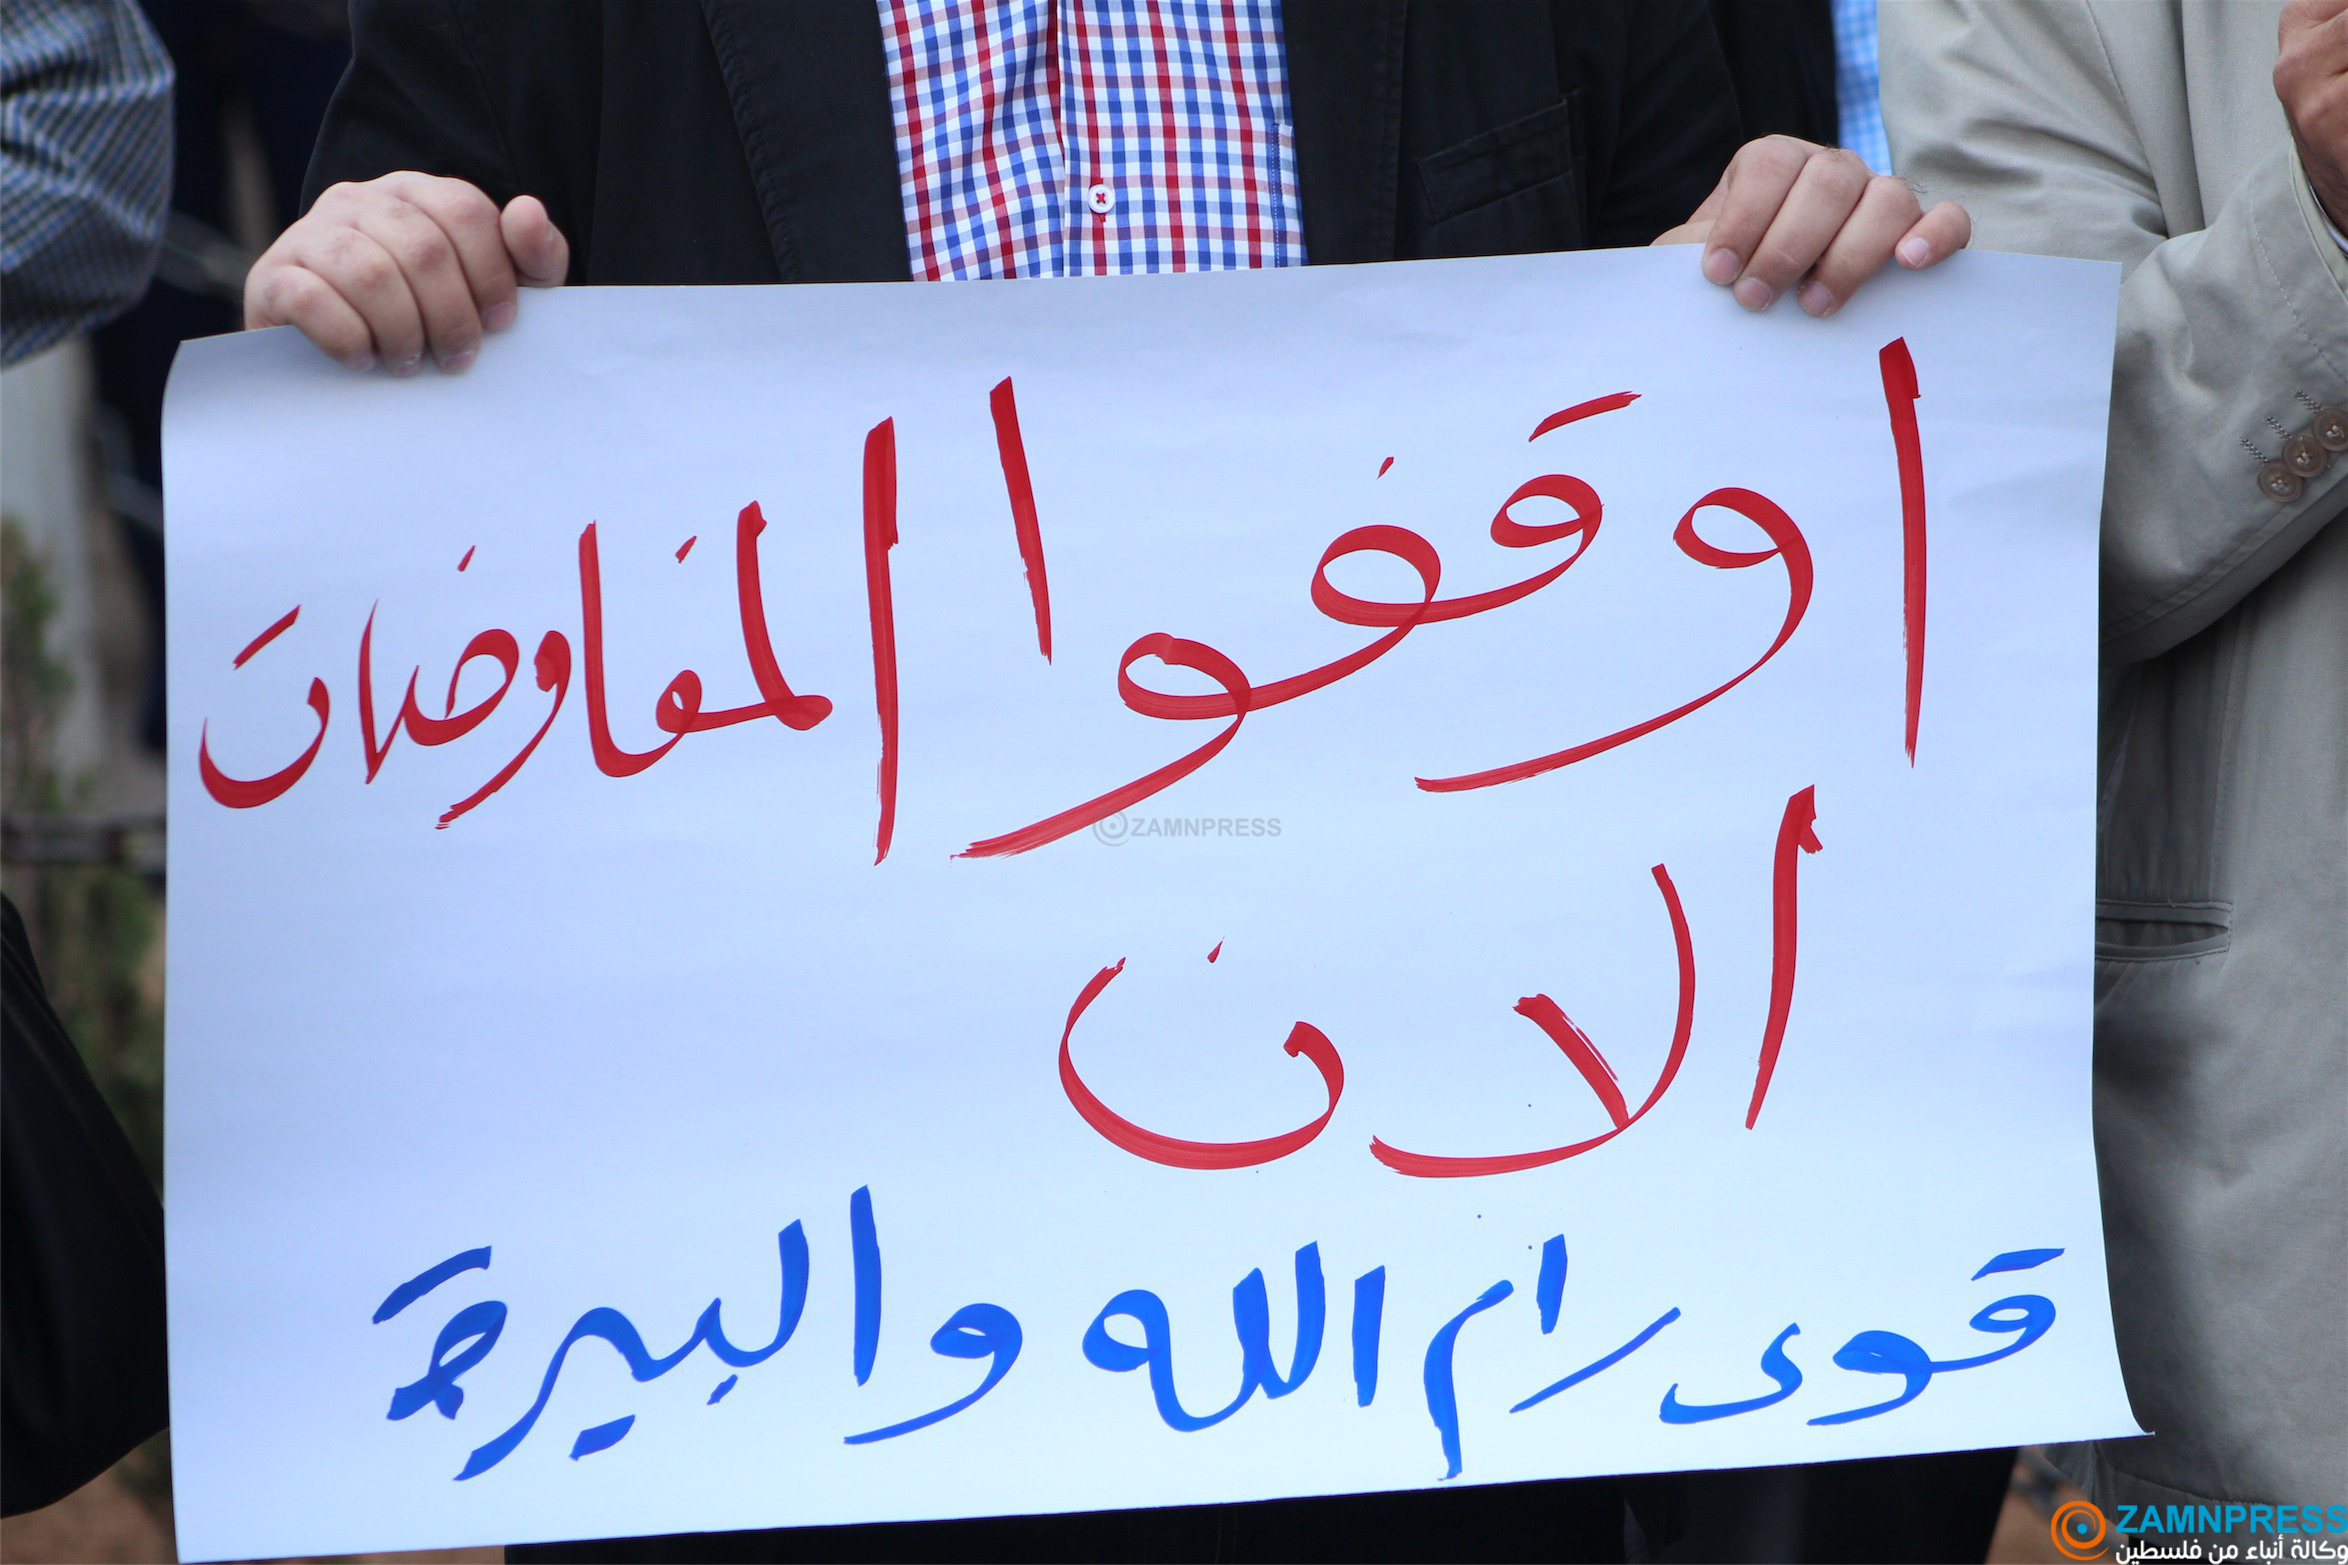 اوقفوا المفاوضات
ZAMNPRESS
الان
قوى رام الله والبيرة
ZAMNPRESS
وكالة أنباء من فلسطين